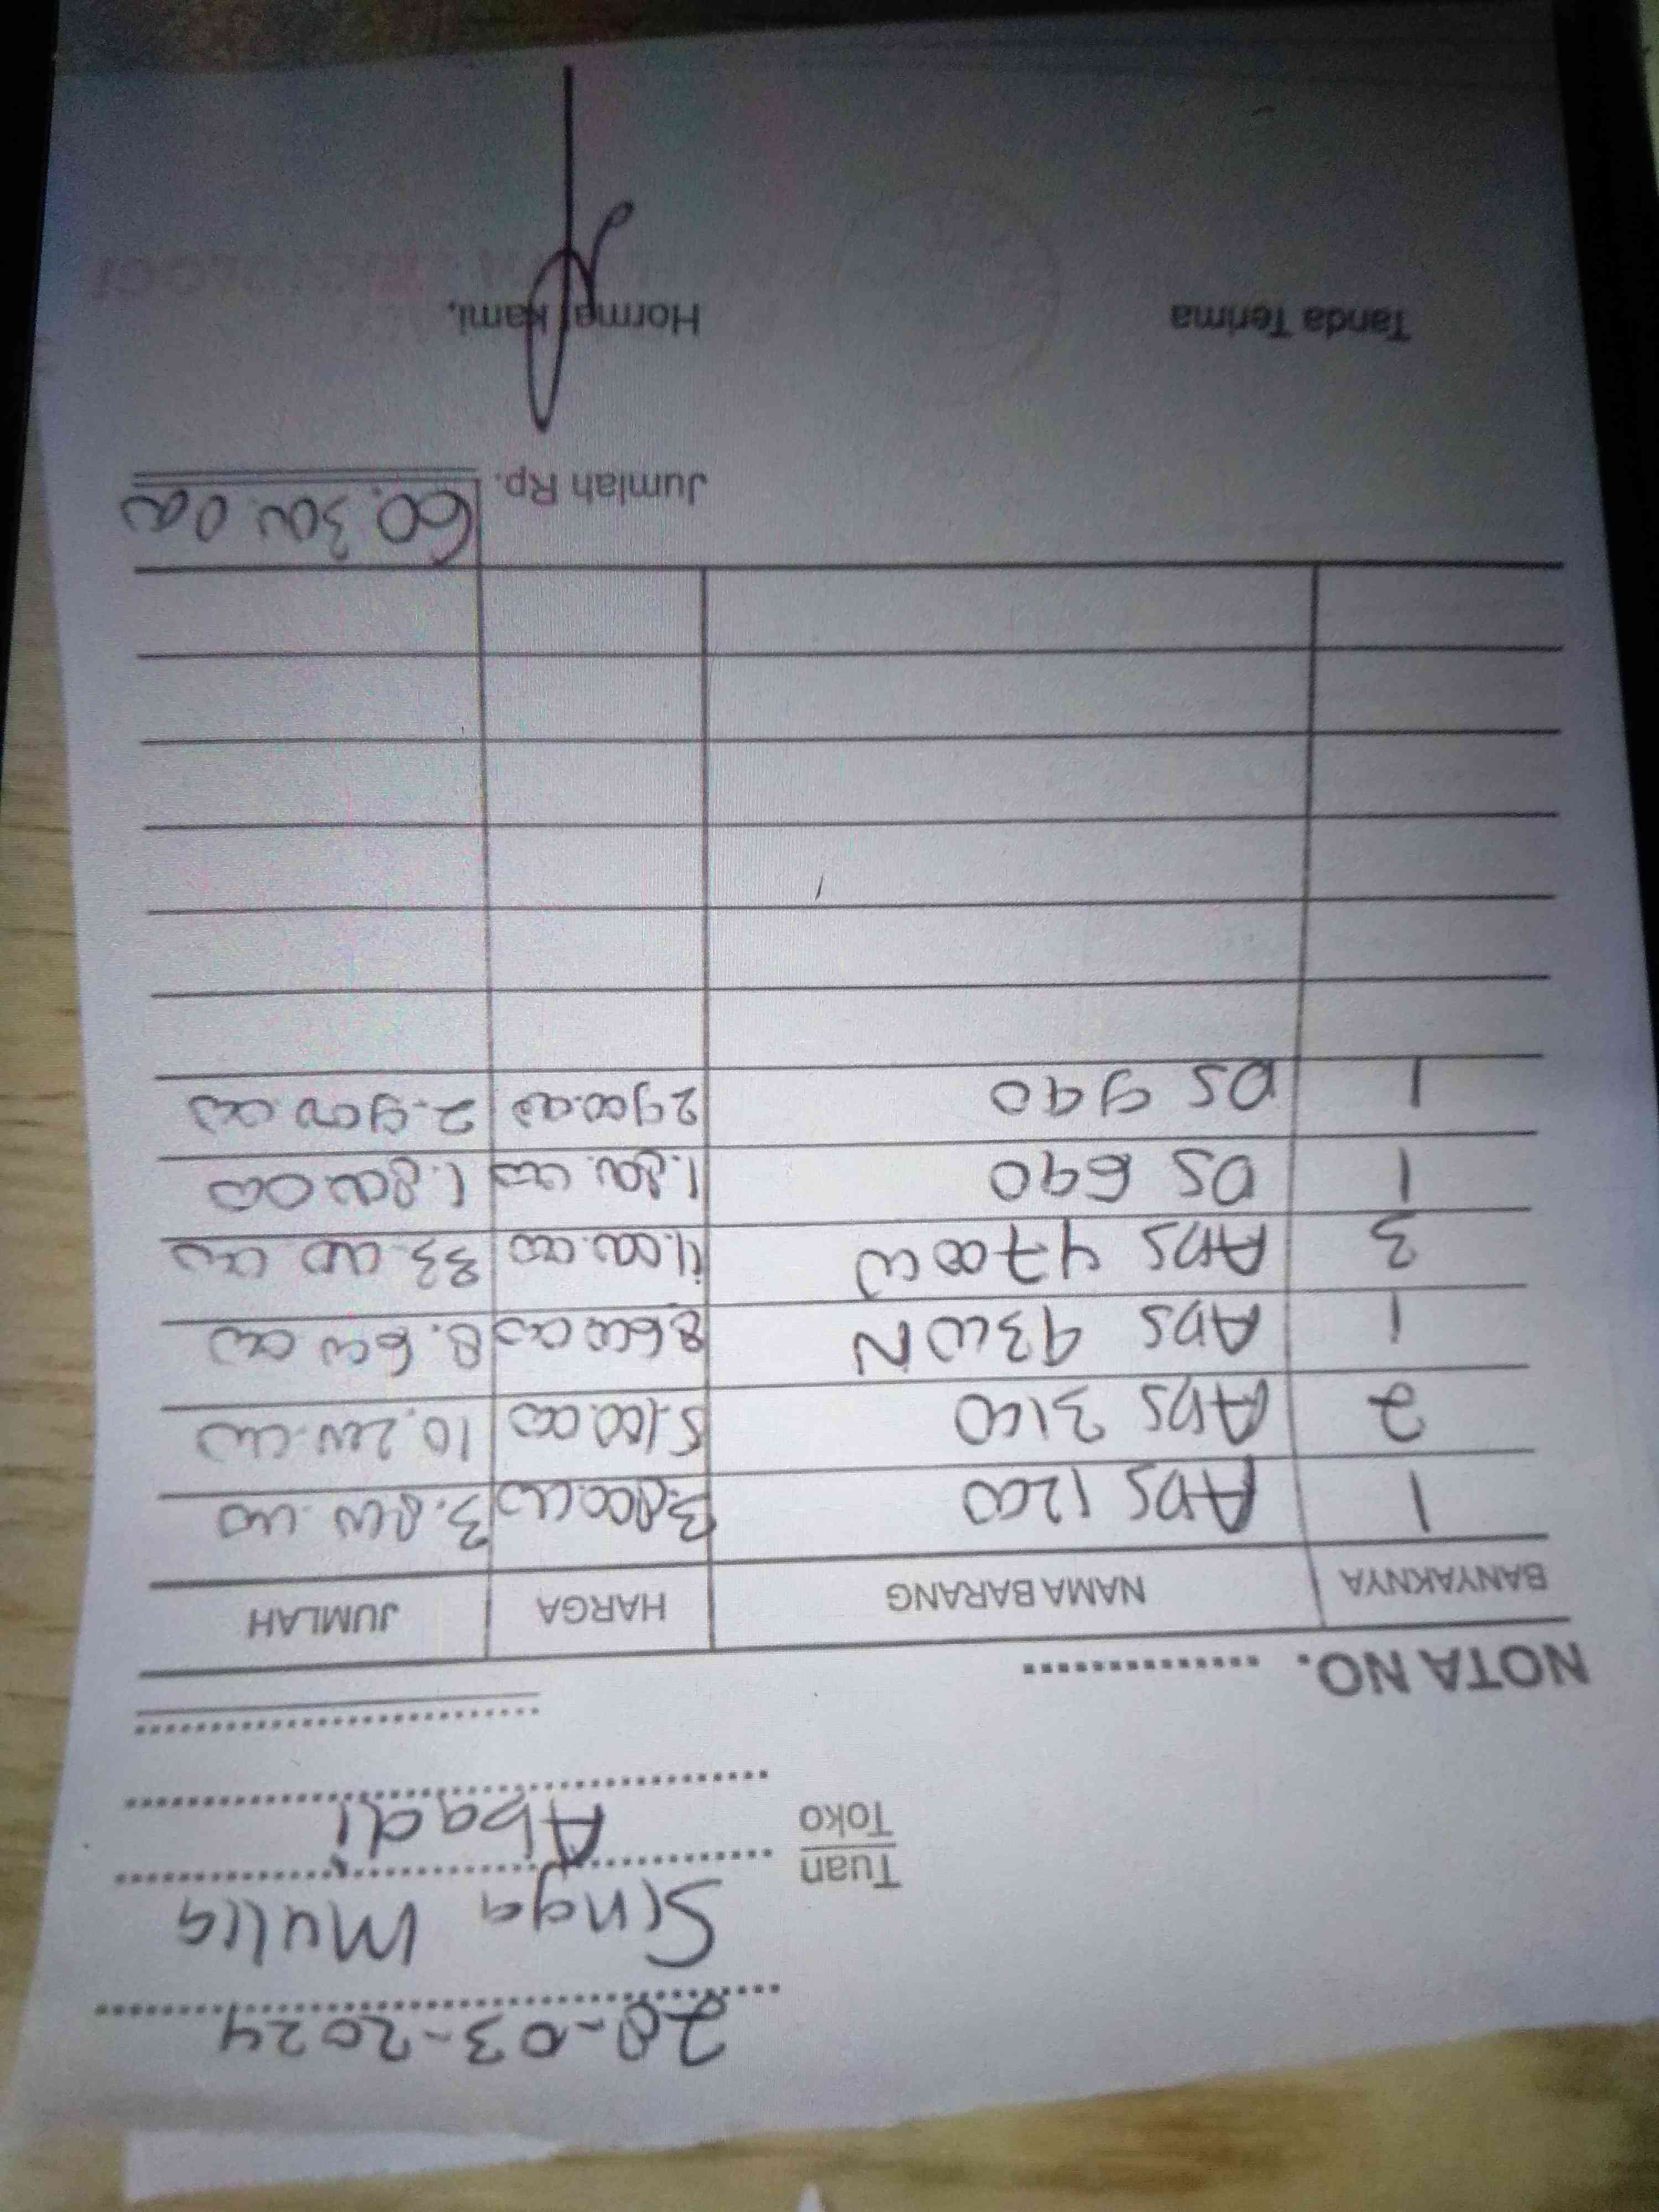 28-03-2024
Tuan
Toko
Singa Mulia
Abadi
NOTA NO.
BANYAKNYA NAMA BARANG HARGA JUMLAH
1 ADS 1200 3.800.000 3.800.000
2 ADS 3100 5.100.000 10.200.000
1 ADS 4300N 8600000 8.600 000
3 ADS 4700W 11.000.000 33.000 000
1 DS 640 1.800.000 1.800.000
1 DS 940 2900.000 2.900.000
Jumlah Rp. 60.300.000
Tanda Terima Hormat kami,